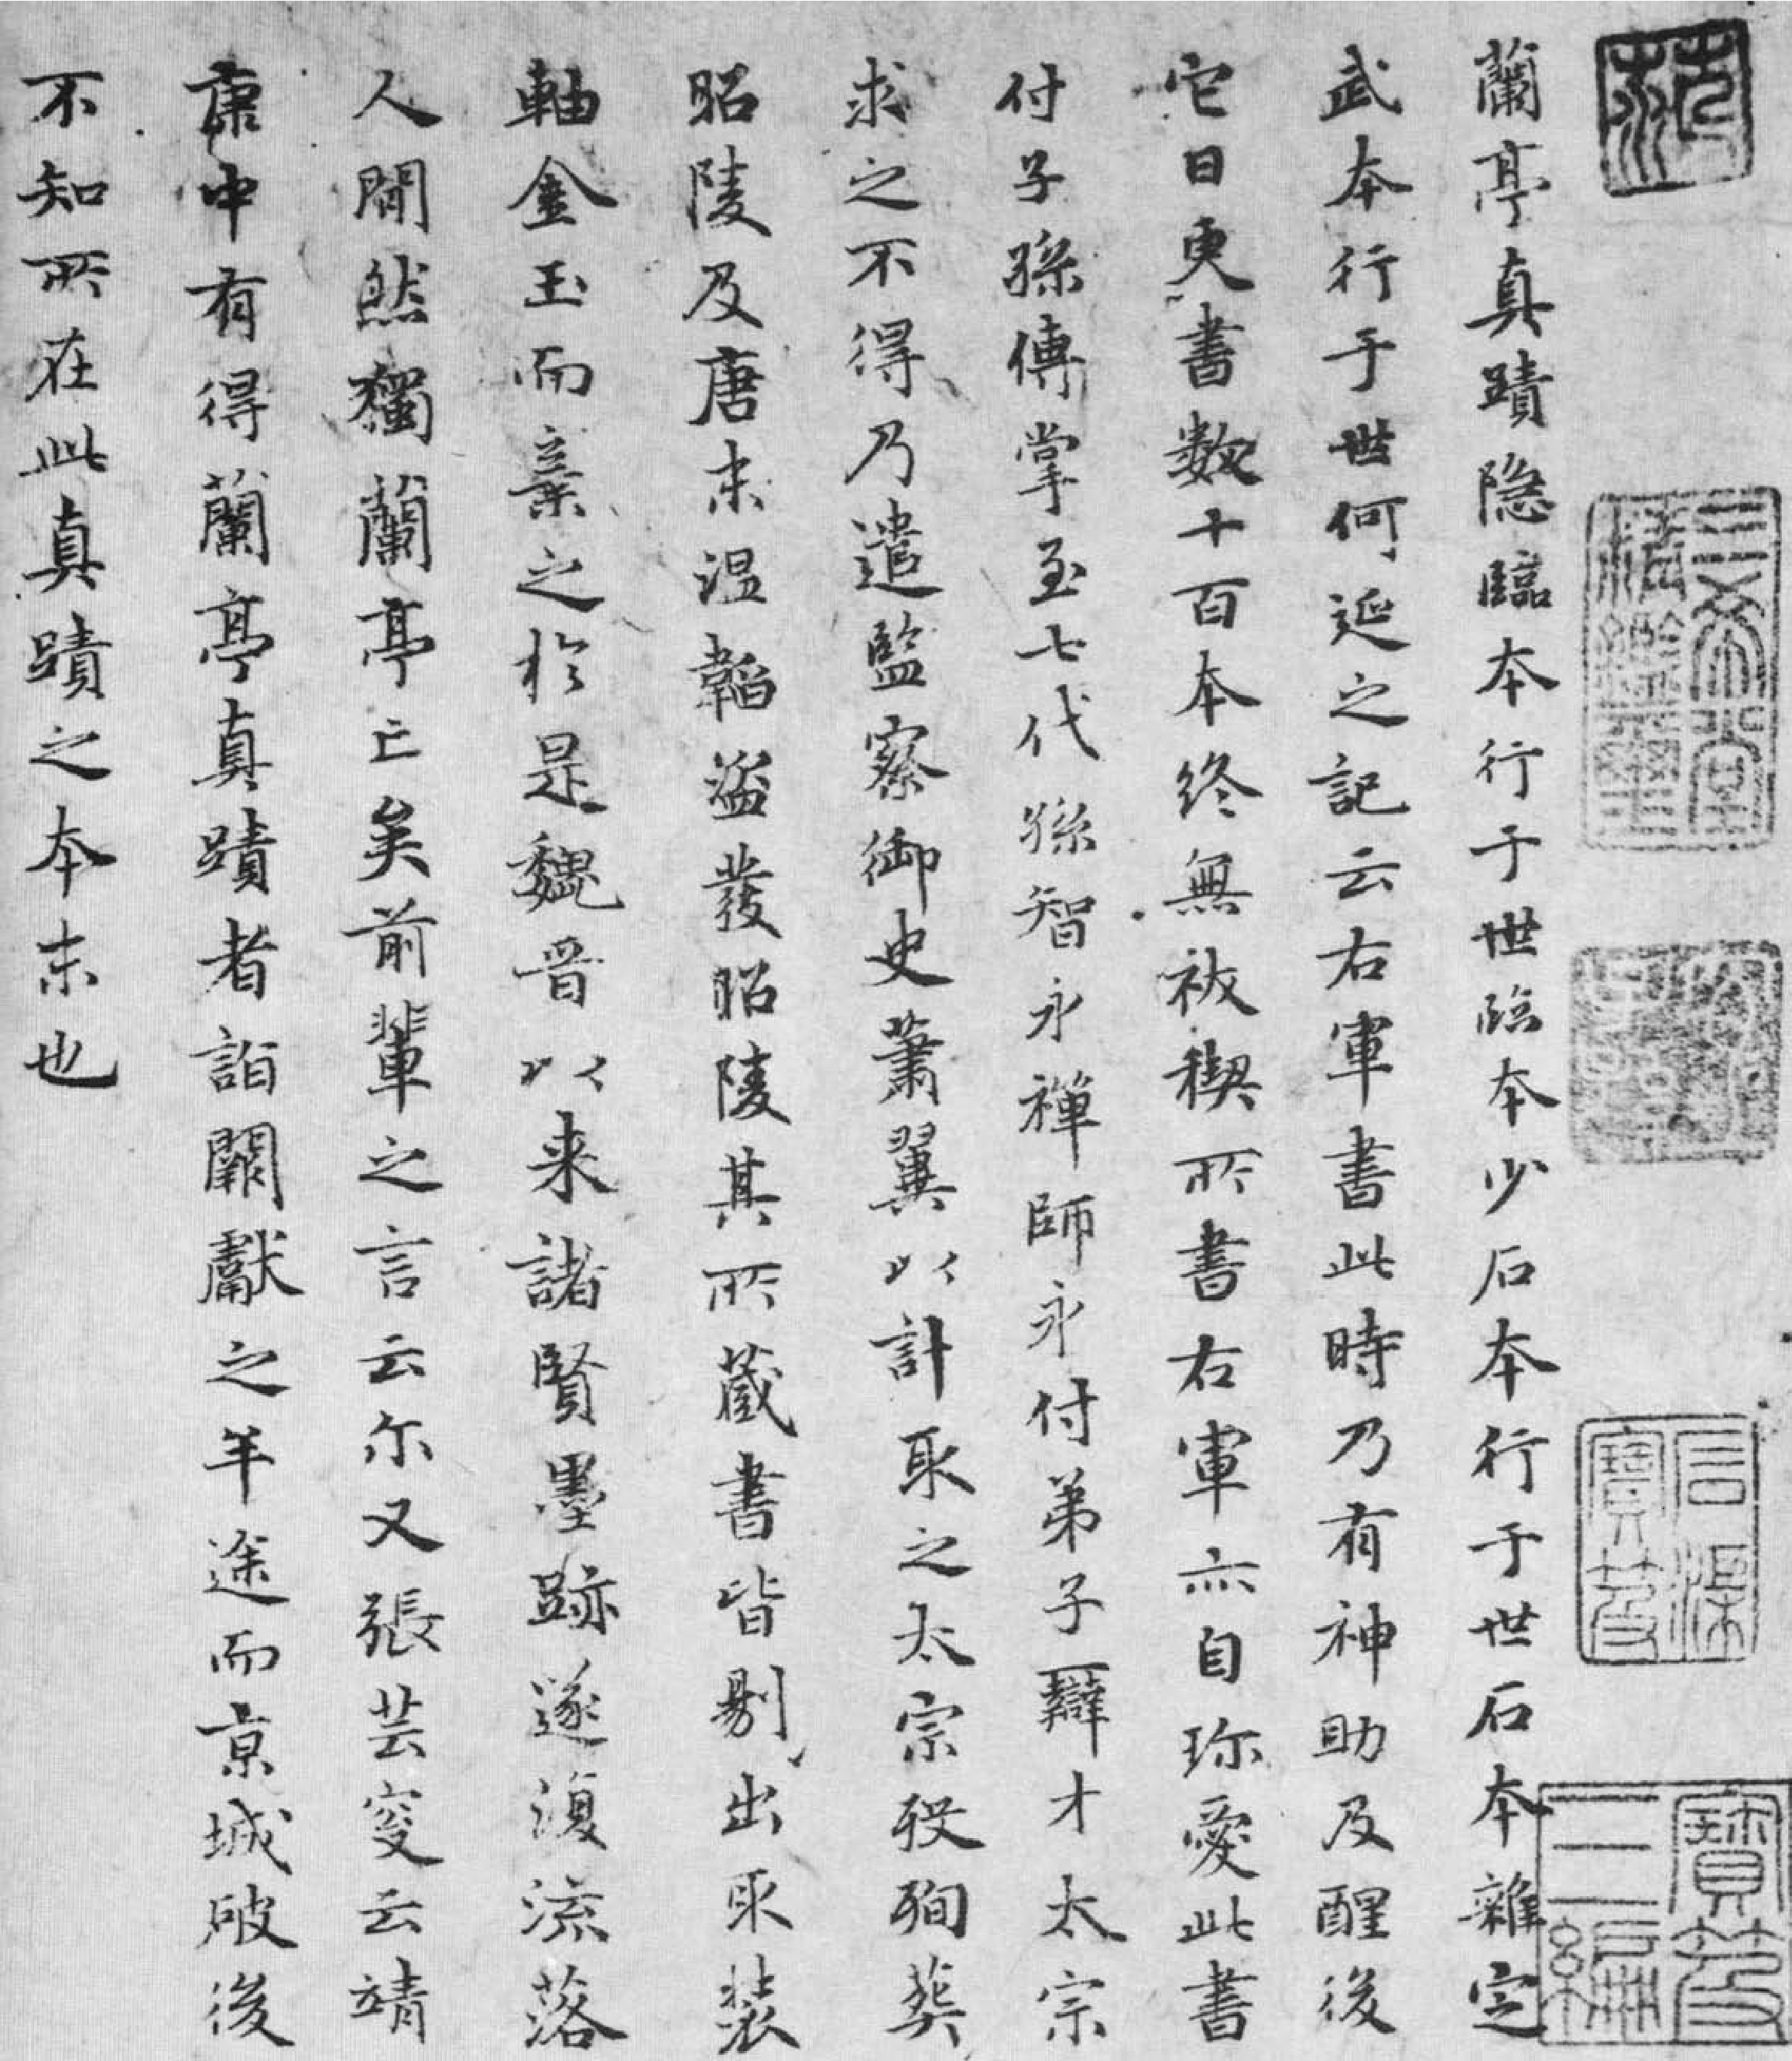 蘭亭真蹟隐臨本行于世臨本少石本行于世石本雜定
武本行于世何延之記云右軍書此時乃有神助及醒後
它日更書數十百本終無祓禊所書右軍亦自珎愛此書
付子孫傳掌至七代孫智永禪師永付弟子辯才太宗
求之不得乃遣監察御史蕭翼以計取之太宗歿殉葬
昭陵及唐末温韜盜發昭陵其所藏書皆剔出取装
軸金玉而棄之於是魏晋以来諸賢墨跡遂復流落
人間然獨蘭亭亡矣前輩之言云尔又張芸叟云靖
康中有得蘭亭真蹟者詣闕獻之半途而京城破後
不知所在此真蹟之本末也
三希堂
精鑑璽
石渠
寶笈
寶笈
三編